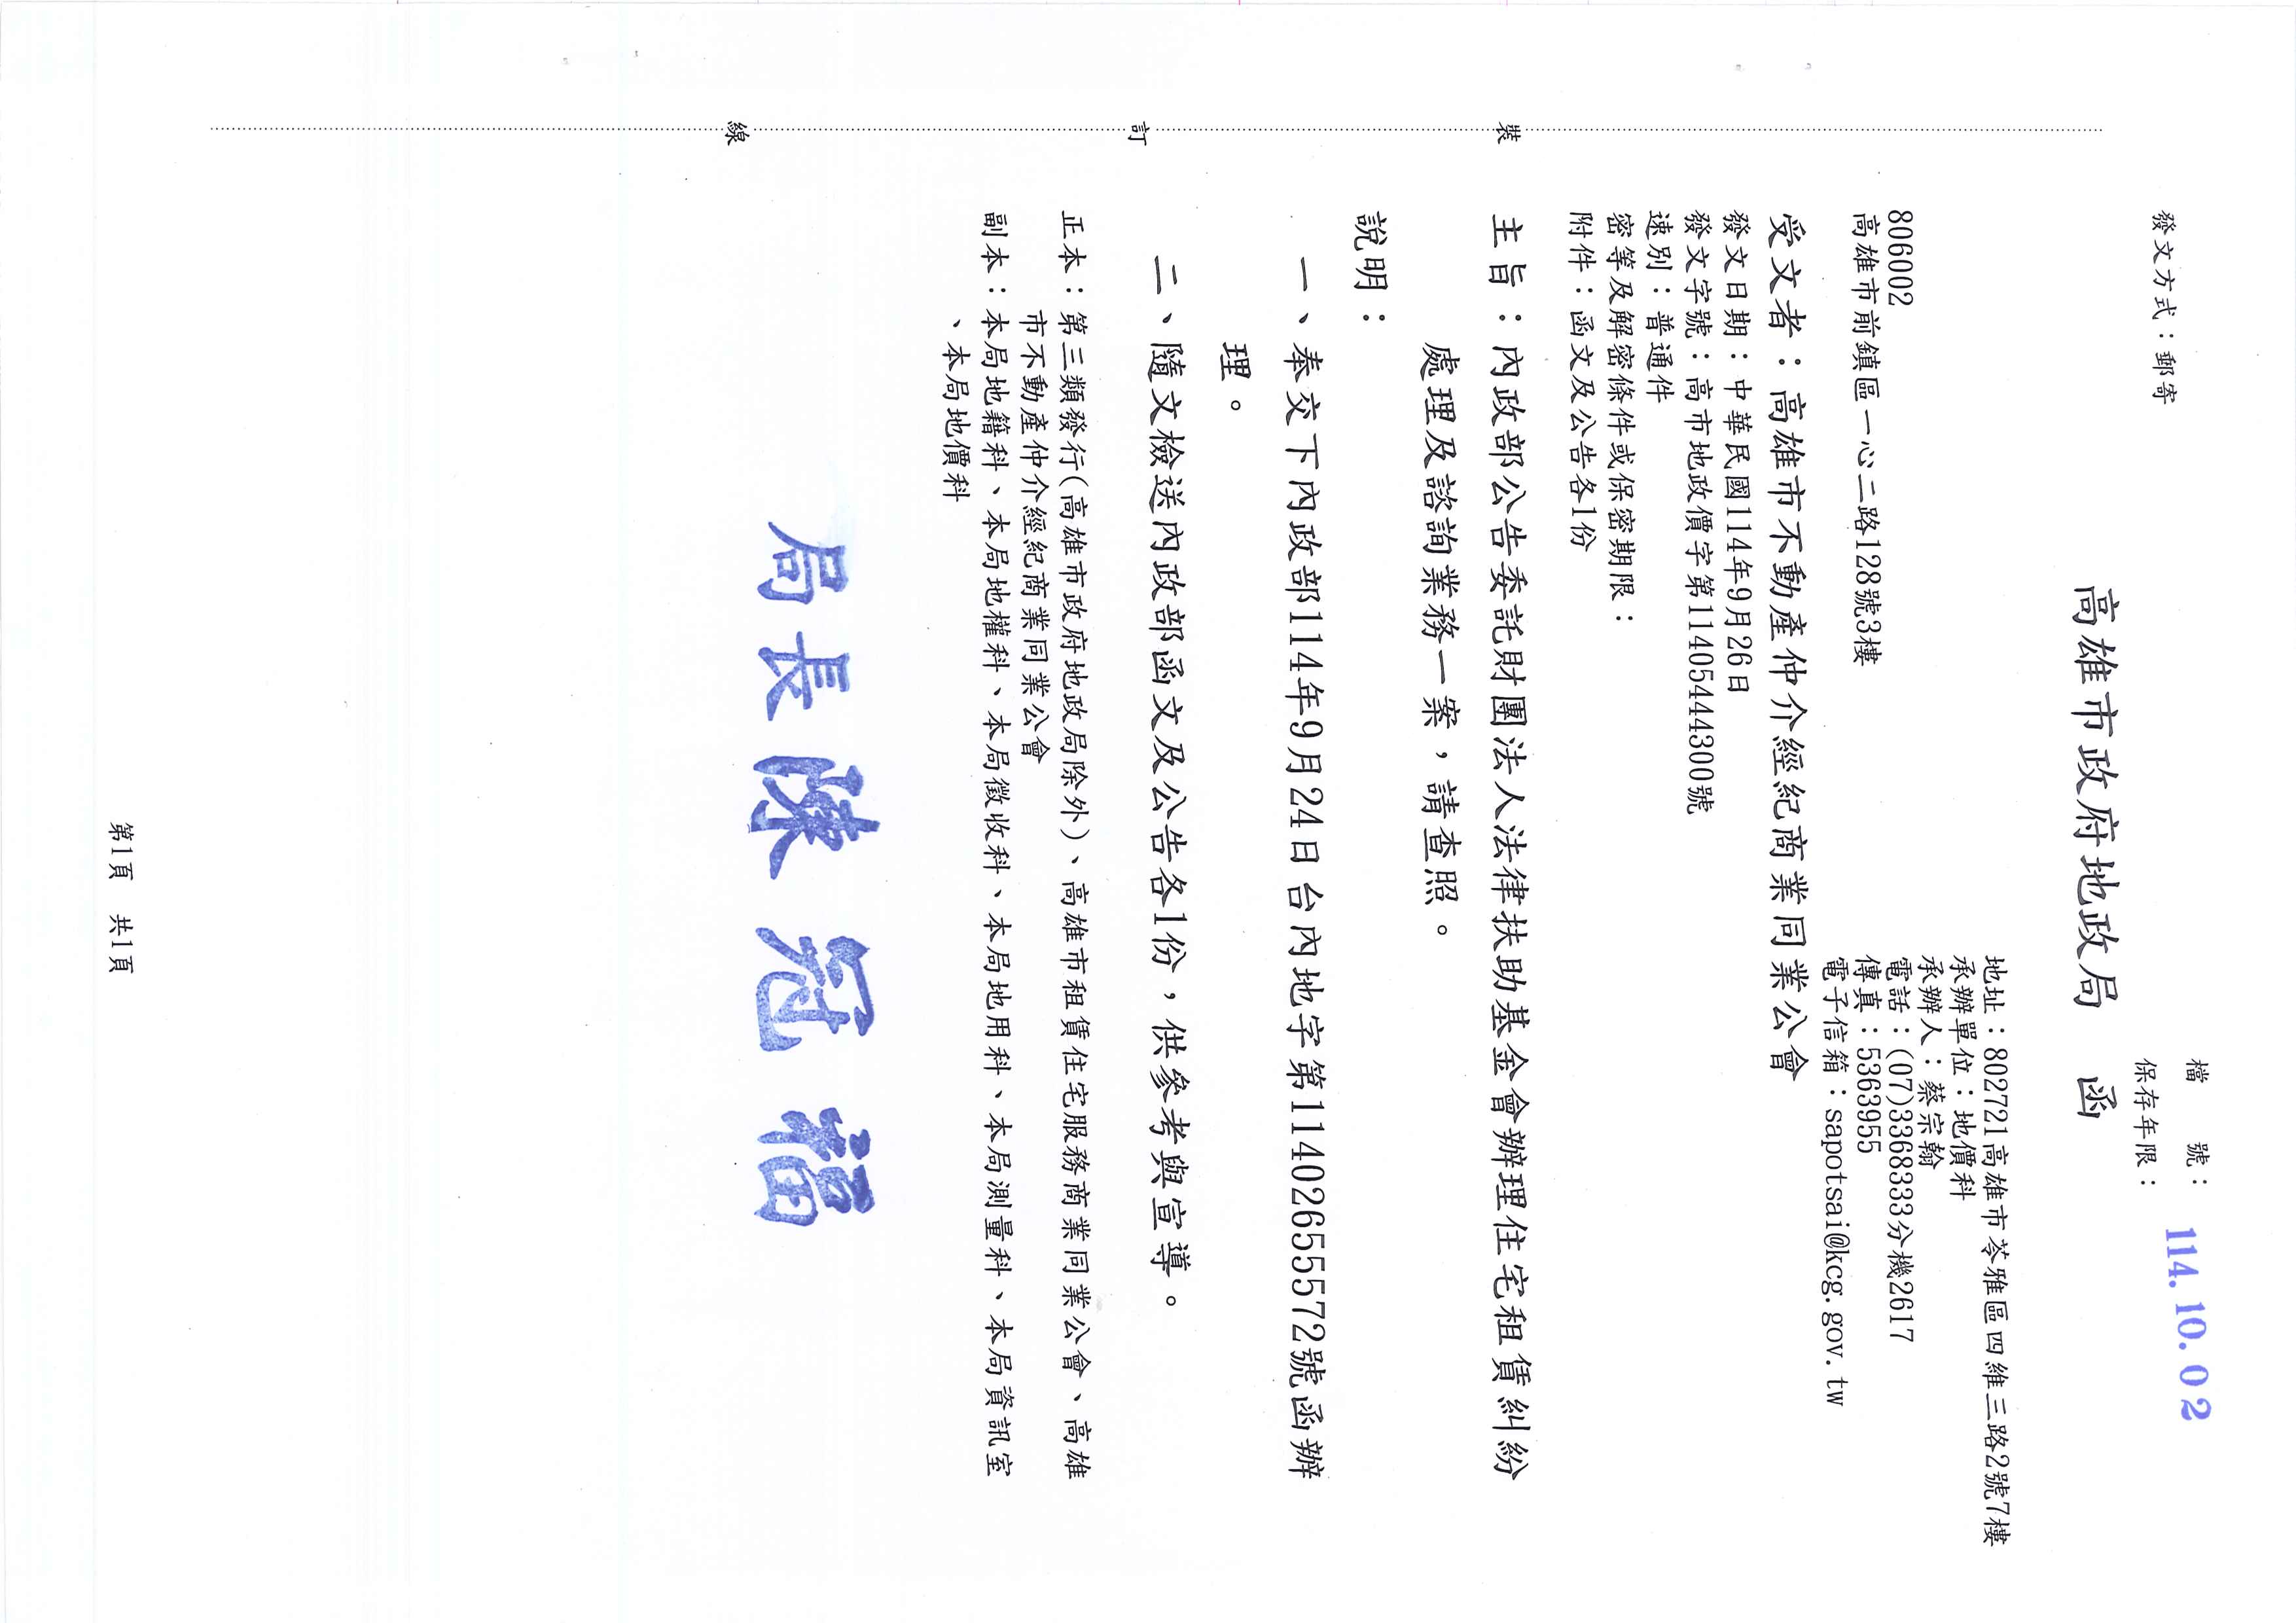 檔　　號：
保存年限：
114.10.02
發文方式：郵寄
高雄市政府地政局　函
地址：802721高雄市苓雅區四維三路2號7樓
承辦單位：地價科
承辦人：蔡宗翰
電話：(07)3368333分機2617
傳真：5363955
電子信箱：sapotsai@kcg.gov.tw
806002
高雄市前鎮區一心二路128號3樓
受文者：高雄市不動產仲介經紀商業同業公會
發文日期：中華民國114年9月26日
發文字號：高市地政價字第11405444300號
速別：普通件
密等及解密條件或保密期限：
附件：函文及公告各1份
主旨：內政部公告委託財團法人法律扶助基金會辦理住宅租賃糾紛
處理及諮詢業務一案，請查照。
說明：
一、奉交下內政部114年9月24日台內地字第11402655572號函辦
理。
二、隨文檢送內政部函文及公告各1份，供參考與宣導。
正本：第三類發行(高雄市政府地政局除外)、高雄市租賃住宅服務商業同業公會、高雄
市不動產仲介經紀商業同業公會
副本：本局地籍科、本局地權科、本局徵收科、本局地用科、本局測量科、本局資訊室
、本局地價科
局長陳冠福
裝
訂
線
第1頁　共1頁